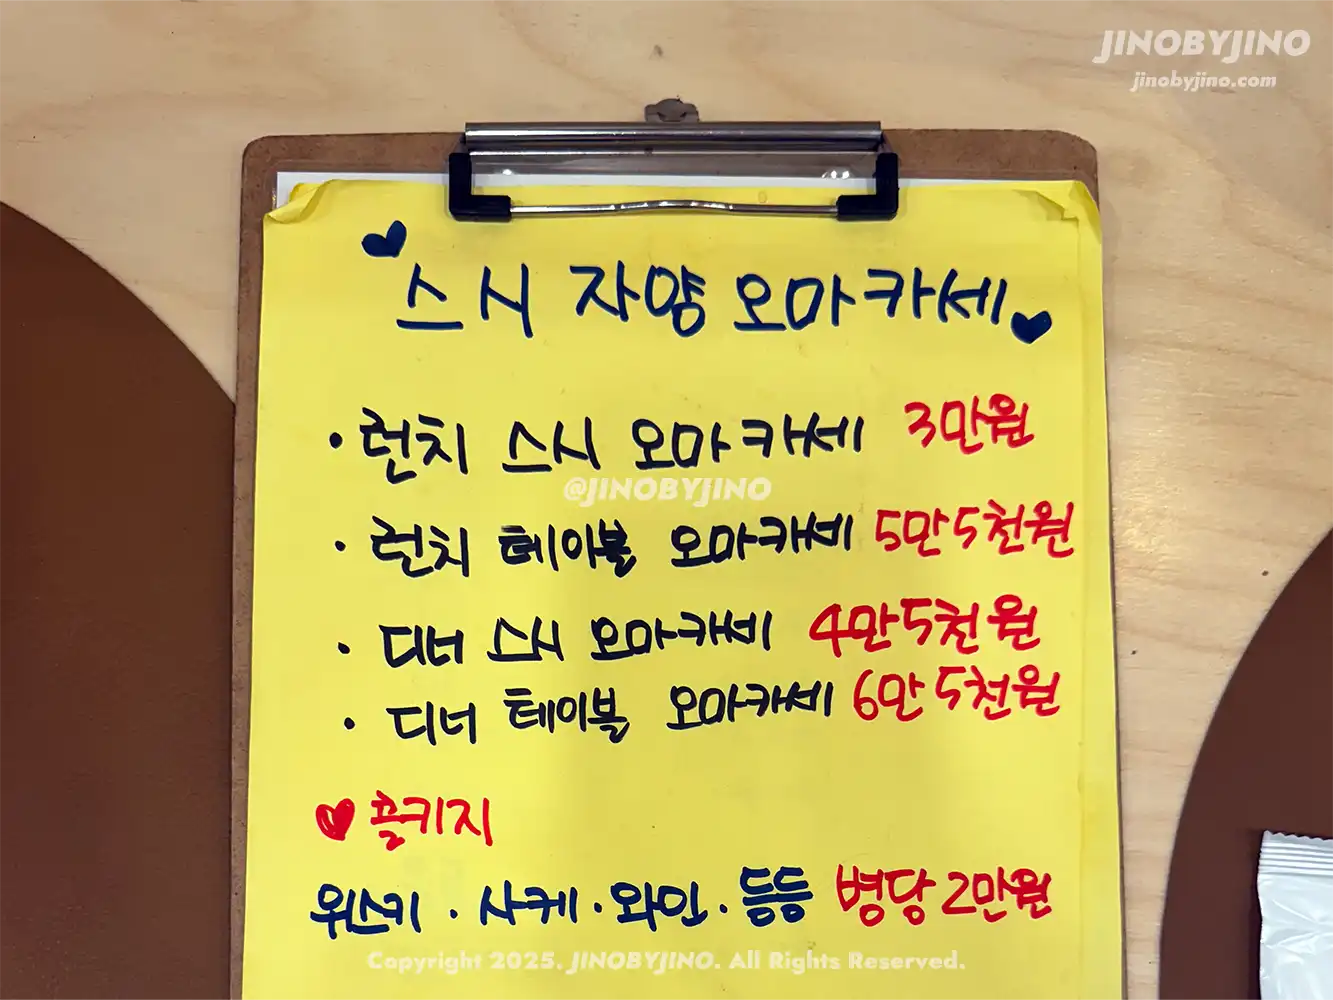 JINOBYJINO
jinobyjino.com
스시 자양 오마카세
· 런치 스시 오마카세 3만원
@JINOBYJINO
· 런치 테이블 오마카세 5만5천원
· 디너 스시 오마카세 4만5천원
· 디너 테이블 오마카세 6만5천원
♥ 콜키지
위스키 · 사케 · 와인 · 등등 병당 2만원
Copyright 2025. JINOBYJINO. All Rights Reserved.